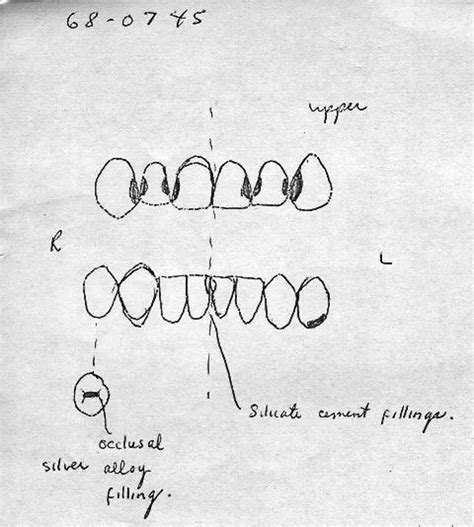 68-0745
upper
R
L
Silicate cement fillings.
occlusal
silver alloy
filling.